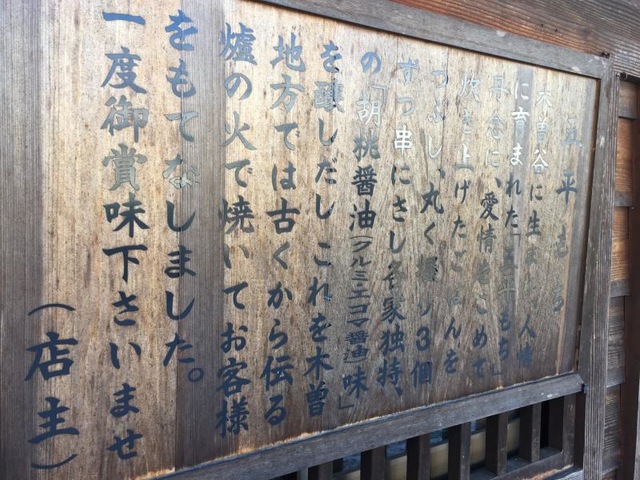 五平もち
木曽谷に生まれ人情
に育まれた「五平もち」
丹念に、愛情をこめて
炊き上げたごはんを
つぶし、丸く握り3個
ずつ串にさし各家独特、
の「胡桃醤油(クルミ・エゴマ醤油)味」
を醸しだし これを木曽
地方では古くから伝る
爐の火で焼いてお客様
をもてなしました。
一度御賞味下さいませ
(店主)